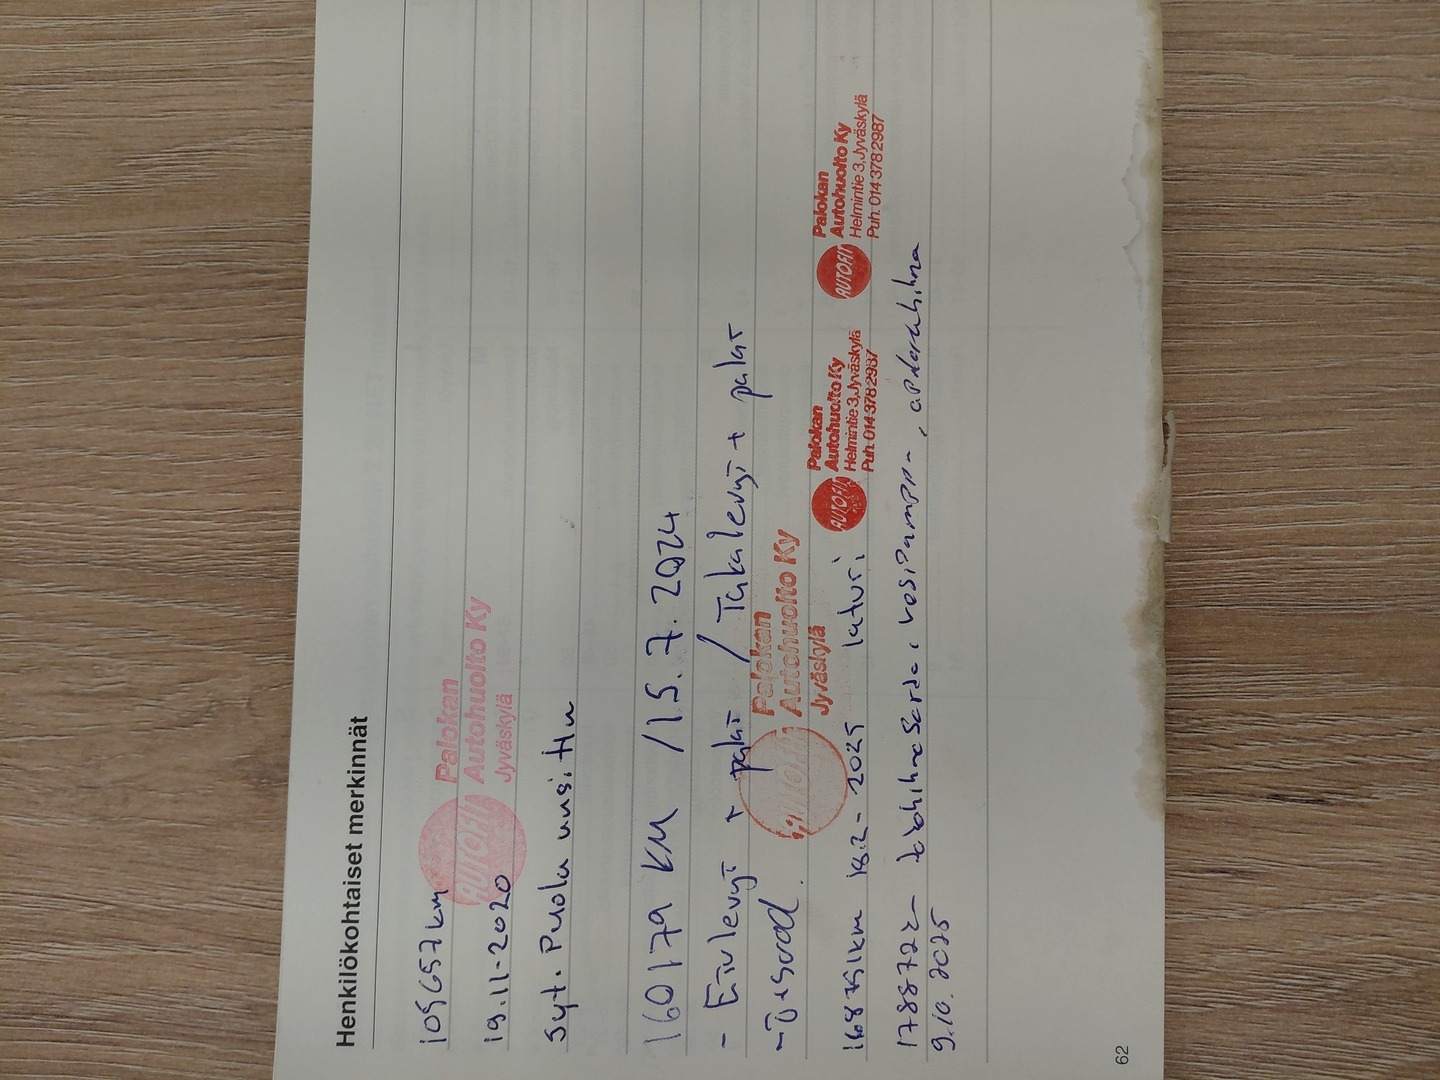 Henkilökohtaiset merkinnät
109657km
AUTOFIT
Palokan
Autohuolto Ky
Jyväskylä
19.11-2020
Syt. Puola uusittu
160179 KM / 15.7.2024
- Etulevyt + palat / Takalevyt + palat
AUTOFIT
Palokan
Autohuolto Ky
Jyväskylä
168751km 18.2-2025 laturi
AUTOFIT
Palokan
Autohuolto Ky
Helmintie 3, Jyväskylä
Puh. 014 378 2987
AUTOFIT
Palokan
Autohuolto Ky
Helmintie 3, Jyväskylä
Puh. 014 378 2987
178872 vesipumppu, apulaitehihna
9.10.2025
62